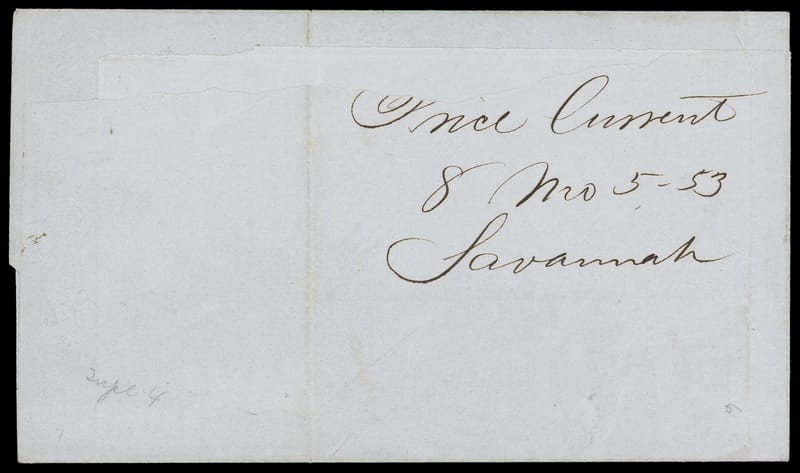 Price Current
8 Mo 5-53
Savannah
Type 4